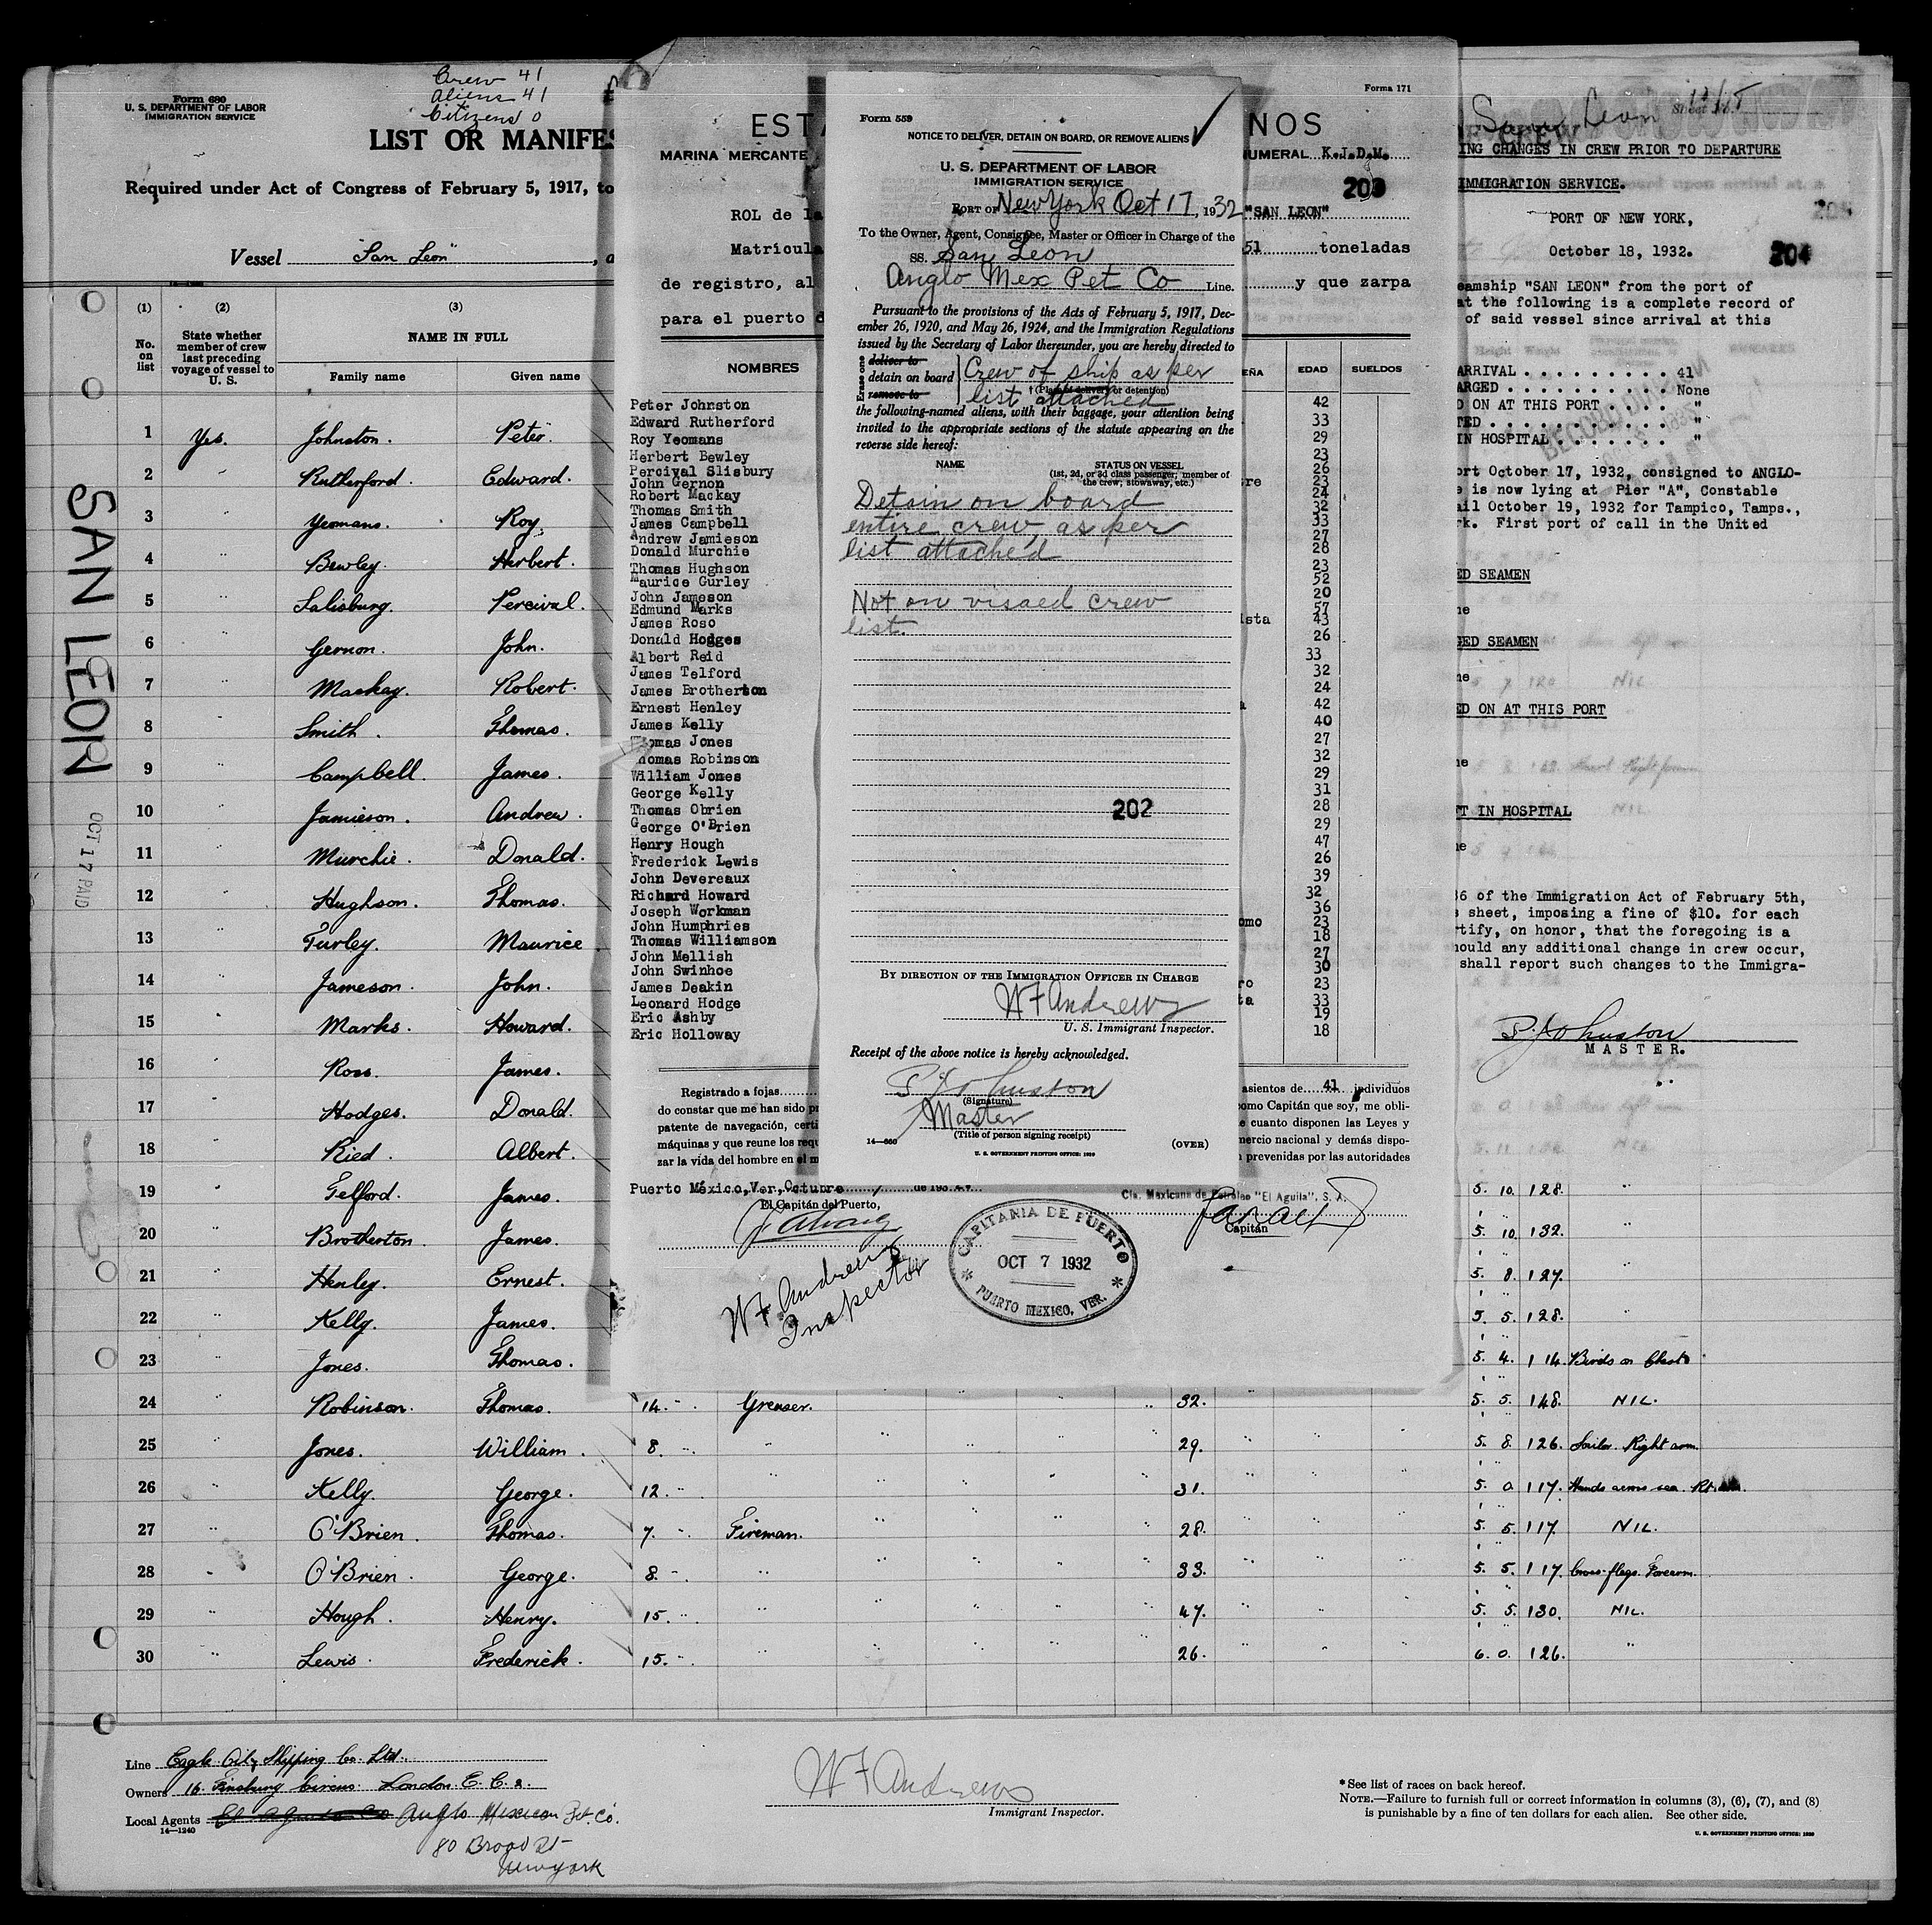 Crew 41
Aliens 41
Citizens 0
Form 680
U. S. DEPARTMENT OF LABOR
IMMIGRATION SERVICE
LIST OR MANIFES
Required under Act of Congress of February 5, 1917, to
Vessel "San Leon", a
SAN LEON
OCT 17 PAID
(1) (2) (3)
No. on list
State whether member of crew last preceding voyage of vessel to U. S.
NAME IN FULL
Family name Given name
1 Yes. Johnston. Peter.
2 " Rutherford. Edward.
3 " Yeomans. Roy.
4 " Bewley. Herbert.
5 " Salisbury. Percival.
6 " Gernon. John.
7 " Mackay. Robert.
8 " Smith. Thomas.
9 " Campbell. James.
10 " Jamieson. Andrew.
11 " Murchie. Donald.
12 " Hughson. Thomas.
13 " Turley. Maurice.
14 " Jameson. John.
15 " Marks. Howard.
16 " Ross. James.
17 " Hodges. Donald.
18 " Ried. Albert.
19 " Telford. James. 5. 10. 128. "
20 " Brotherton. James. 5. 10. 132. "
21 " Henley. Ernest. 5. 8. 127. "
22 " Kelly. James. 5. 5. 128. "
23 " Jones. Thomas. 5. 4. 114. Birds on Chest
24 " Robinson. Thomas. 14. " Greaser. " 32. " 5. 5. 148. NIL.
25 " Jones. William. 8. " " 29. " 5. 8. 126. Sailor Right arm.
26 " Kelly. George. 12. " " 31. " 5. 0. 117. Hands across sea. Rt.
27 " O'Brien. Thomas. 7. " Fireman. " 28. " 5. 5. 117. NIL.
28 " O'Brien. George. 8. " " 33. " 5. 5. 117. Cross flags Forearm.
29 " Hough. Henry. 15. " " 47. " 5. 5. 130. NIL.
30 " Lewis. Frederick. 15. " " 26. " 6. 0. 126. "
Line Eagle Oil Shipping Co. Ltd.
Owners 16. Finsbury Circus. London E. C. 2.
Local Agents Anglo Mexican Pet. Co.
14—1240
80 Broad St
New York
W F Andrews
Immigrant Inspector.
* See list of races on back hereof.
NOTE.—Failure to furnish full or correct information in columns (3), (6), (7), and (8)
is punishable by a fine of ten dollars for each alien. See other side.
U. S. GOVERNMENT PRINTING OFFICE: 1929
Forma 171
ESTA
NOS
MARINA MERCANTE
NUMERAL K.J.D.M.
203
ROL de la
"SAN LEON"
Matrícula
51 toneladas
de registro, al
y que zarpa
para el puerto d
NOMBRES
EÑA EDAD SUELDOS
Peter Johnston 42
Edward Rutherford 33
Roy Yeomans 29
Herbert Bewley 23
Percival Slisbury 26
John Gernon 23
Robert Mackay 24
Thomas Smith 32
James Campbell 33
Andrew Jamieson 27
Donald Murchie 28
Thomas Hughson 23
Maurice Gurley 52
John Jameson 20
Edmund Marks 57
James Roso 43
Donald Hodges 26
Albert Reid 33
James Telford 32
James Brotherton 24
Ernest Henley 42
James Kelly 40
Thomas Jones 27
Thomas Robinson 32
William Jones 29
George Kelly 31
Thomas Obrien 28
George O'Brien 29
Henry Hough 47
Frederick Lewis 26
John Devereaux 39
Richard Howard 32
Joseph Workman 36
John Humphries 23
Thomas Williamson 18
John Mellish 27
John Swinhoe 30
James Deakin 23
Leonard Hodge 33
Eric Ashby 19
Eric Holloway 18
Registrado a fojas
asientos de 41 individuos
do constar que me han sido pr
como Capitán que soy, me obli-
patente de navegación, certi
e cuanto disponen las Leyes y
máquinas y que reune los requ
mercio nacional y demás dispo-
zar la vida del hombre en el m
prevenidas por las autoridades
Puerto México, Ver, Octubre 7 de 193
El Capitán del Puerto,
Cía. Mexicana de Petróleo "El Aguila", S. A.
Capitán
W F Andrews
Inspector
CAPITANIA DE PUERTO
OCT 7 1932
PUERTO MEXICO, VER.
Form 559
NOTICE TO DELIVER, DETAIN ON BOARD, OR REMOVE ALIENS
U. S. DEPARTMENT OF LABOR
IMMIGRATION SERVICE
PORT OF New York Oct 17, 1932
To the Owner, Agent, Consignee, Master or Officer in Charge of the
SS. San Leon
Anglo Mex Pet Co Line.
Pursuant to the provisions of the Acts of February 5, 1917, Dec-
ember 26, 1920, and May 26, 1924, and the Immigration Regulations
issued by the Secretary of Labor thereunder, you are hereby directed to
Erase one
deliver to
detain on board
remove to
Crew of ship as per
† (Place of delivery or detention)
list attached
the following-named aliens, with their baggage, your attention being
invited to the appropriate sections of the statute appearing on the
reverse side hereof:
NAME STATUS ON VESSEL
(1st, 2d, or 3d class passenger; member of
the crew; stowaway, etc.)
Detain on board
entire crew as per
list attached
Not on visaed crew
list.
202
BY DIRECTION OF THE IMMIGRATION OFFICER IN CHARGE
W F Andrews
U. S. Immigrant Inspector.
Receipt of the above notice is hereby acknowledged.
P Johnston
(Signature)
Master
(Title of person signing receipt)
14—666
(OVER)
U. S. GOVERNMENT PRINTING OFFICE: 1929
San Leon
Sheet
ING CHANGES IN CREW PRIOR TO DEPARTURE
IMMIGRATION SERVICE.
205
PORT OF NEW YORK,
October 18, 1932.
204
eamship "SAN LEON" from the port of
at the following is a complete record of
of said vessel since arrival at this
ARRIVAL . . . . . . . . . . 41
ARGED . . . . . . . . . . . None
D ON AT THIS PORT . . . . . "
TED . . . . . . . . . . . . "
IN HOSPITAL . . . . . . . . "
ort October 17, 1932, consigned to ANGLO-
e is now lying at Pier "A", Constable
ail October 19, 1932 for Tampico, Tamps.,
rk. First port of call in the United
ED SEAMEN
ne
GED SEAMEN
ne
ED ON AT THIS PORT
ne
FT IN HOSPITAL
ne
36 of the Immigration Act of February 5th,
s sheet, imposing a fine of $10. for each
rtify, on honor, that the foregoing is a
hould any additional change in crew occur,
shall report such changes to the Immigra-
P. Johnston
MASTER.